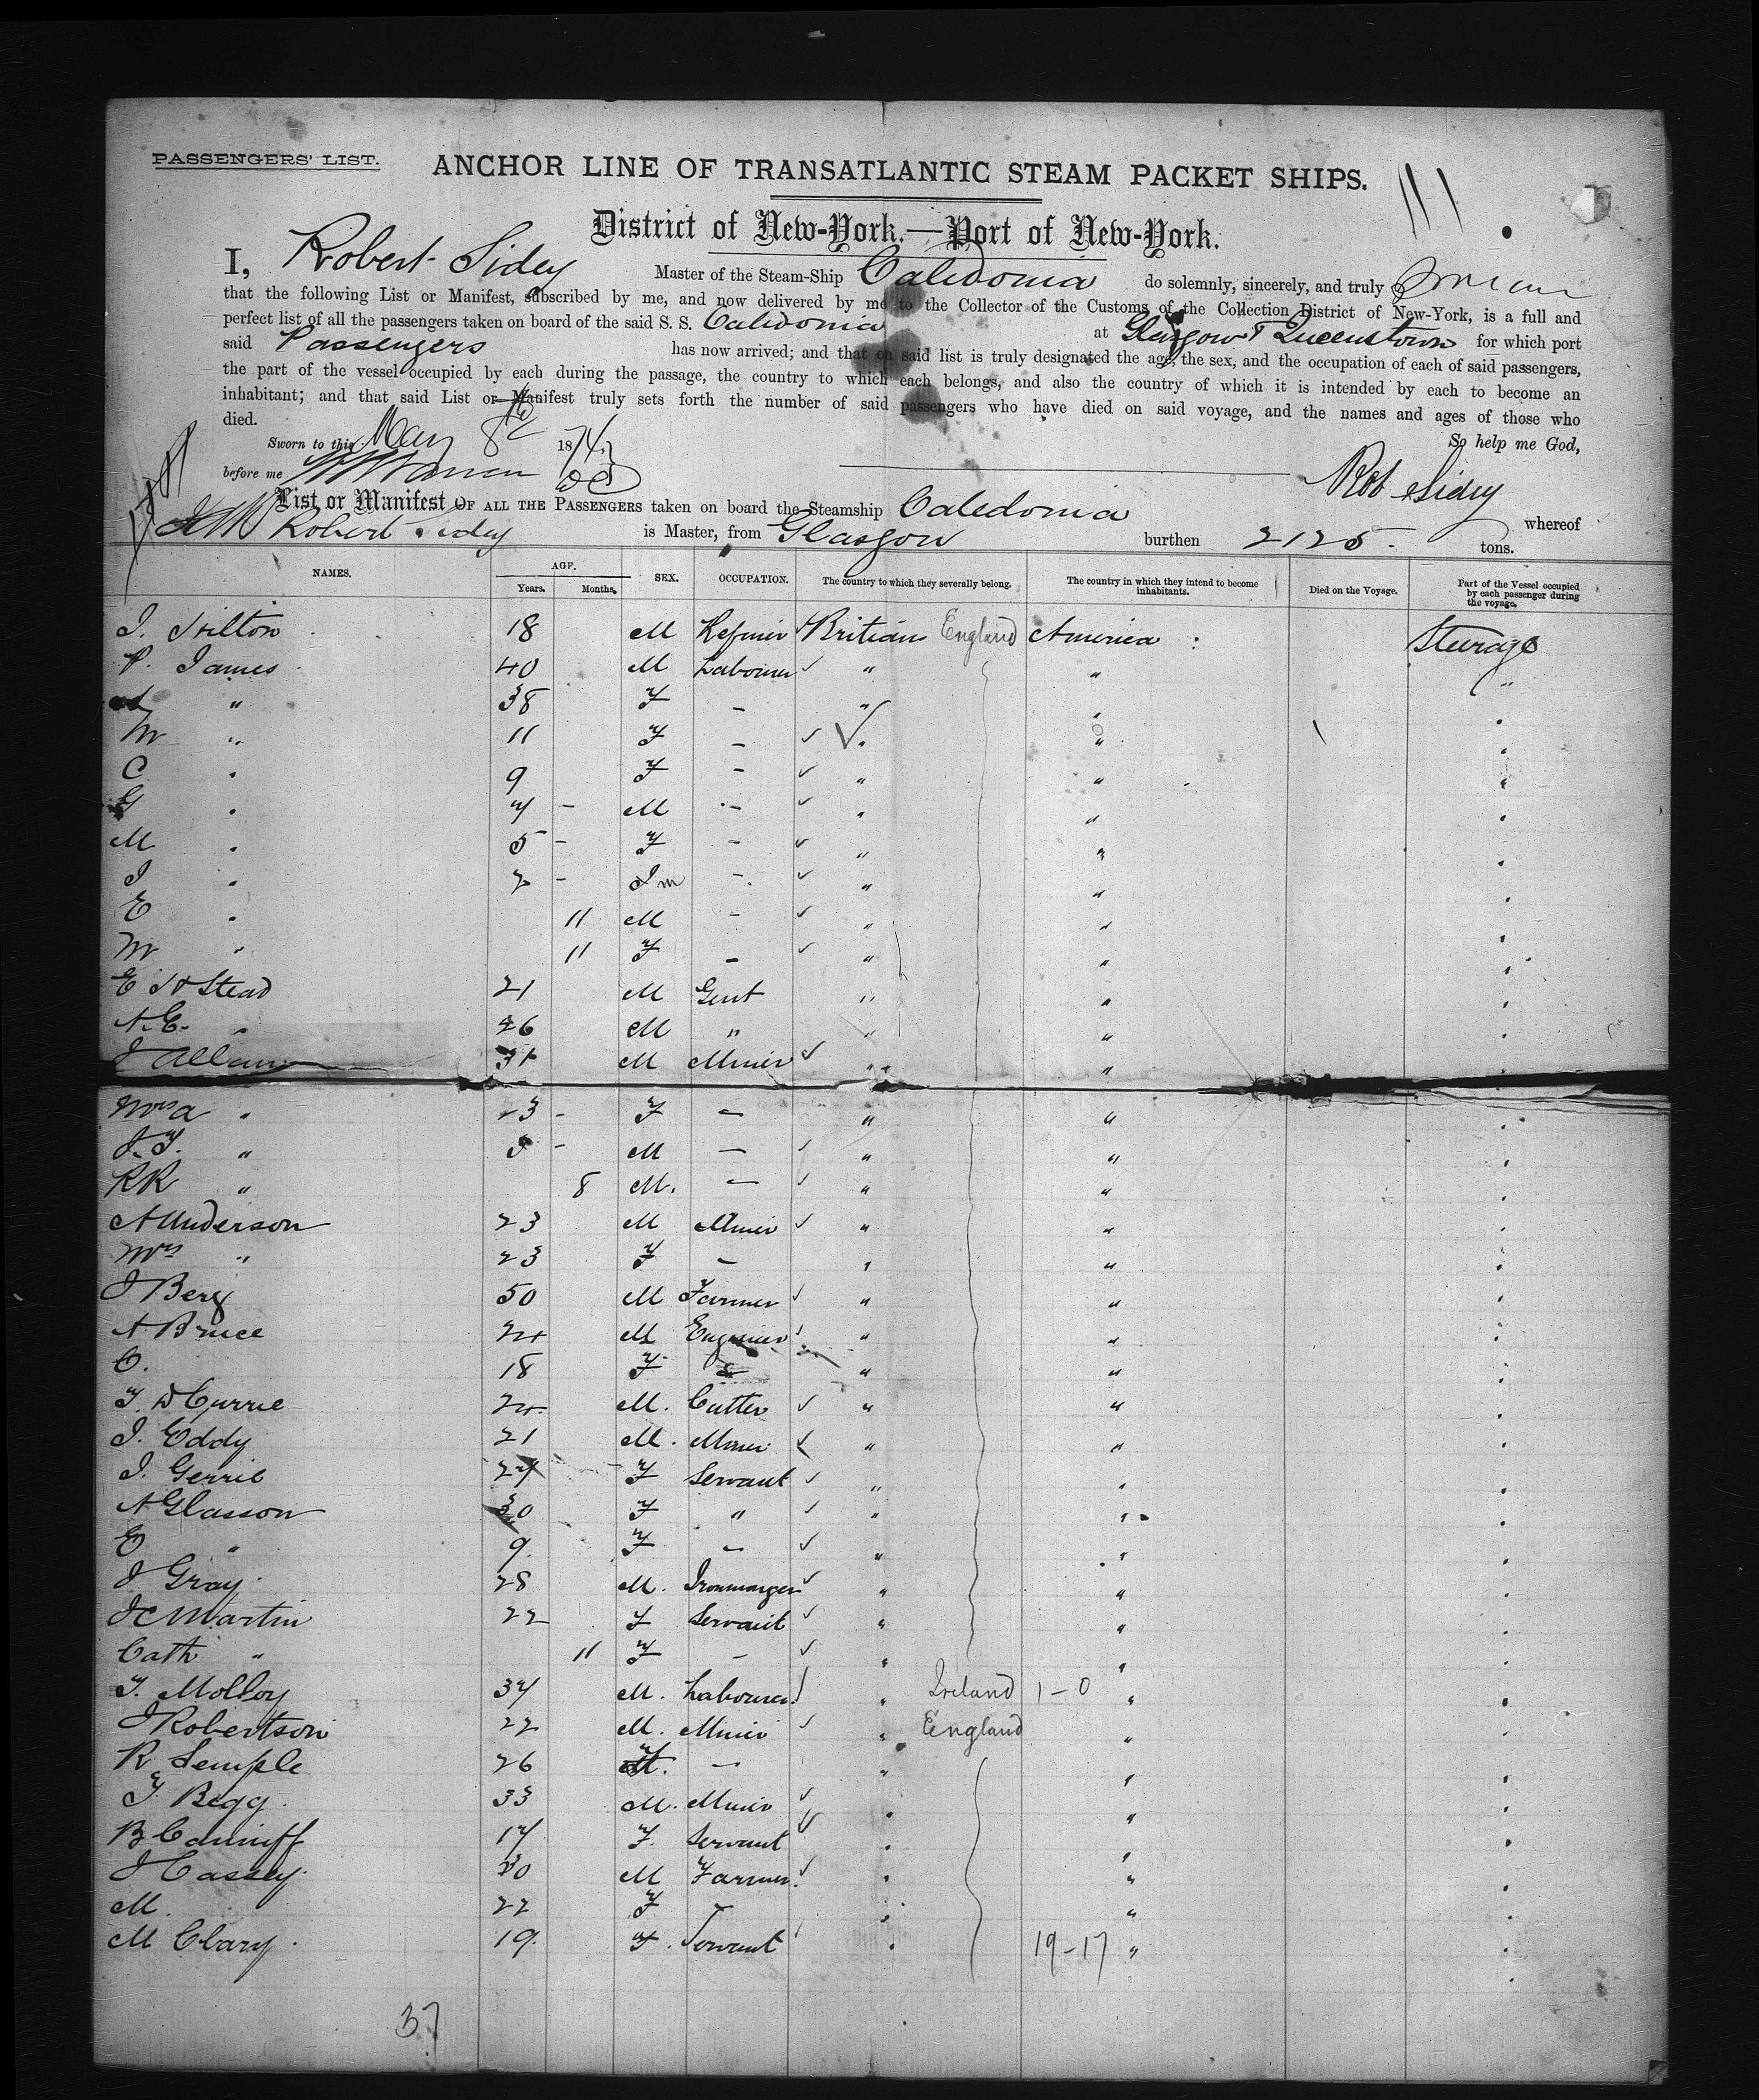 PASSENGERS' LIST.
ANCHOR LINE OF TRANSATLANTIC STEAM PACKET SHIPS.
111
District of New-York.—Port of New-York.
I, Robert Sidey Master of the Steam-Ship Caledonia do solemnly, sincerely, and truly
that the following List or Manifest, subscribed by me, and now delivered by me to the Collector of the Customs of the Collection District of New-York, is a full and
perfect list of all the passengers taken on board of the said S. S. Caledonia at Glasgow & Queenstown for which port
said Passengers has now arrived; and that on said list is truly designated the age, the sex, and the occupation of each of said passengers,
the part of the vessel occupied by each during the passage, the country to which each belongs, and also the country of which it is intended by each to become an
inhabitant; and that said List or Manifest truly sets forth the number of said passengers who have died on said voyage, and the names and ages of those who
died.
So help me God,
Sworn to this May 8th 1874
before me
Rob Sidey
List or Manifest OF ALL THE PASSENGERS taken on board the Steamship Caledonia whereof
Robert Sidey is Master, from Glasgow burthen 2125 tons.
NAMES. AGE. Years. Months. SEX. OCCUPATION. The country to which they severally belong. The country in which they intend to become inhabitants. Died on the Voyage. Part of the Vessel occupied by each passenger during the voyage.
18 M England America Steerage
P. James 40 M Labourer " " "
" 38 F — " " "
M " 11 F — " " "
C " 9 F — " " "
G " 7 - M — " " "
M " 5 - F — " " "
J " 2 - m — " " "
E " 11 M — " " "
M " 11 F — " " "
Stead 21 M Gent " " "
A. E. " 26 M " " " "
J Allan 31 M Miner " " "
Mrs a " 23 - F — " " "
J. T. " - M — " " "
RR " 8 M. — " " "
A Anderson 23 M Miner " " "
Mrs " 23 F — " " "
J Berg 50 M Farmer " " "
A Bruce 24 M Engineer " " "
C. 18 F " " "
T. D Currie 24 M. Cutter " " "
J. Eddy 21 M. Miner " " "
J. Gerrie 27 F Servant " " "
A Glasson 30 F " " " "
E " 9. F — " " "
J Gray 28 M. Ironmonger " " "
J C Martin 22 F Servant " " "
Cath " 11 F — " " "
T. Molloy 37 M. Labourer " Ireland 1-0 " "
J Robertson 22 M. Miner " England " "
R Semple 26 F — " " "
T Begg 33 M. Miner " " "
B Canniff 17 F. Servant " " "
J Cassey 30 M Farmer " " "
M. 22 F — " " "
M Clary 19. F. Servant " 19-17 " "
37